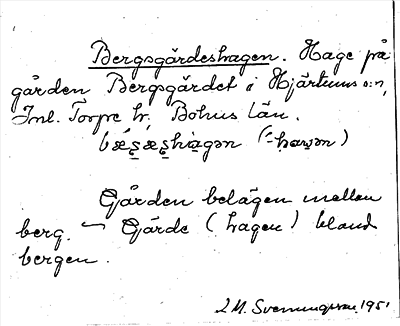 Bergsgärdeshagen. Hage på
gården Bergsgärdet i Hjärtums s:n,
Inl. Torpe hr. Bohus län.
Gården belägen mellan
berg. ~ Gärde (hagen) bland
bergen.
I M. Svenungsson 1951